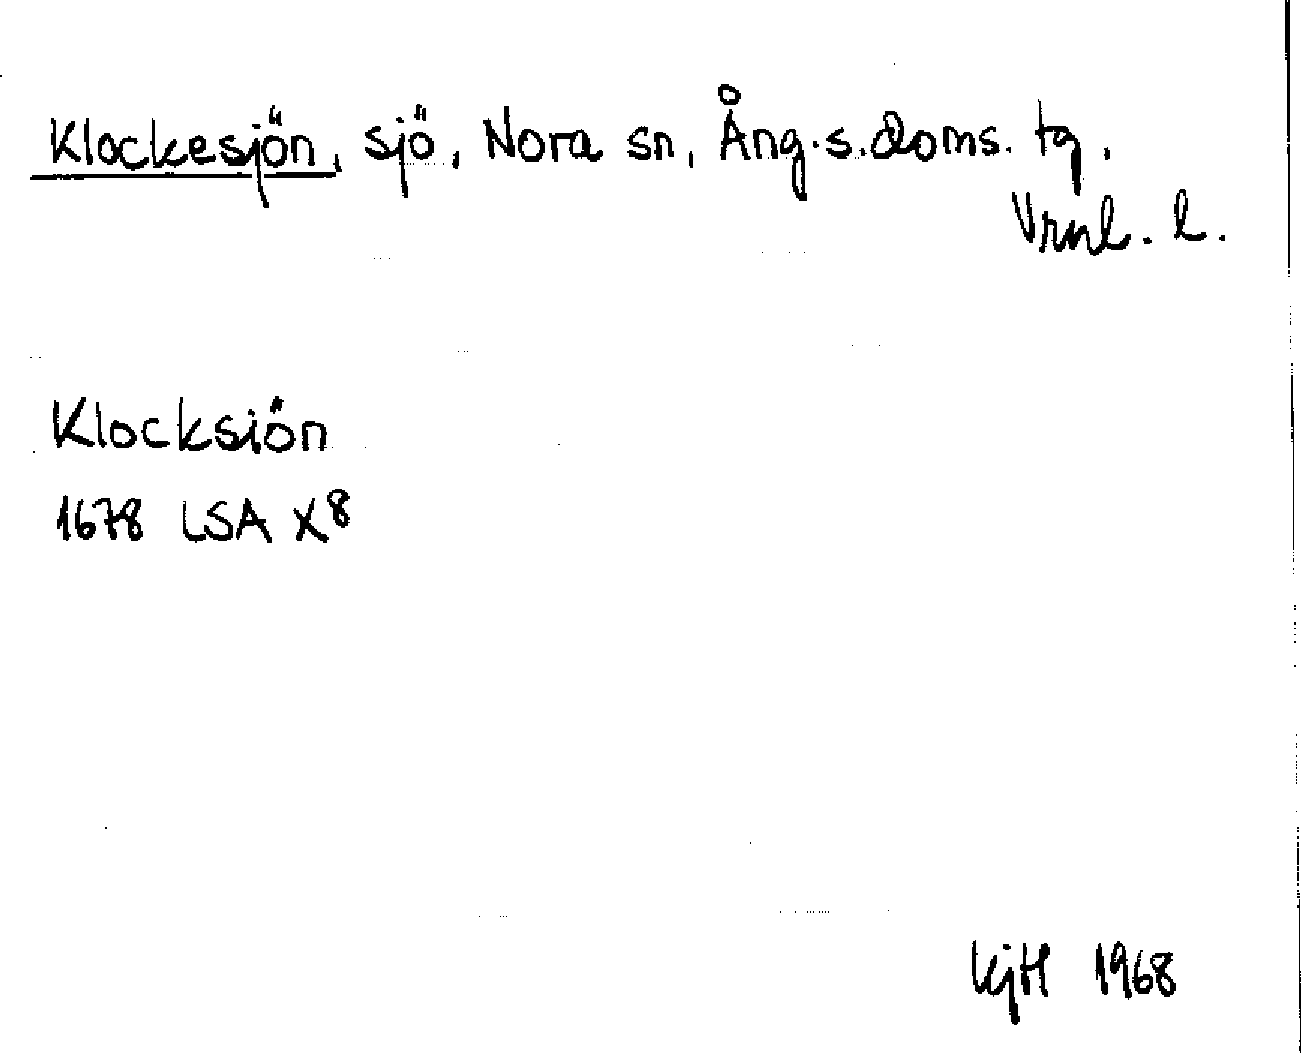 Klockesjön, sjö, Nora sn, Ång.s.doms. tg.
Vrnl. l.
Klocksiön
1678 LSA X8
KjH 1968